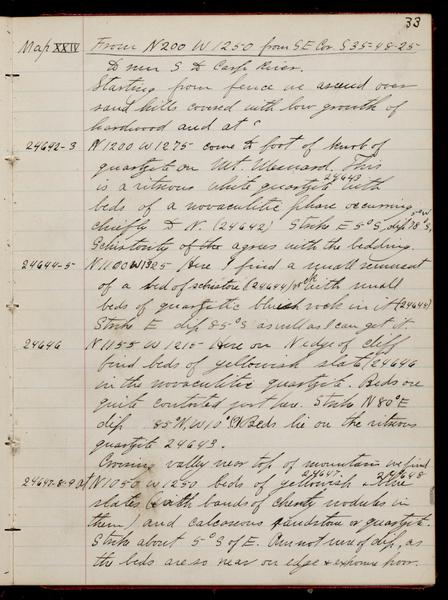 33
Map XXIV From N200 W1250 from SE Cor S35-48-25
to run S to Carp River.
Starting from fence we ascend over
sand hills covered with low growth of
hardwood and at
24642-3 N1200 W1275 come to foot of knob of
quartzite on Mt. Mesnard. This
is a vitreous white quartzite 24643 with
beds of a novaculitic phase occurring
chiefly to N. (24642) Strike E 5°S, dip 78°S,
Schistosity of the agrees with the bedding.
24644-5 N1100 W1325 Here I find a small remnant
of a bed of schistose (24644) rock with small
beds of quartzitic bluish rock in it (24645)
Strike E dip 85°S as well as I can get it.
24646 N1155 W1215 Here on N edge of cliff
find beds of yellowish slate (24646
in the novaculitic quartzite. Beds are
quite contorted just here. Strike N80°E
dip 85°N, W10° Beds lie on the vitreous
quartzite 24643.
Crossing valley near top of mountain we find
24647-8-9 at N1050 W1250 beds of yellowish 24647- 24648
slates (with bands of cherty nodules in
them) and calcareous sandstone or quartzite.
Strike about 5°S of E. Am not sure of dip, as
the beds are so near on edge & exposure poor.